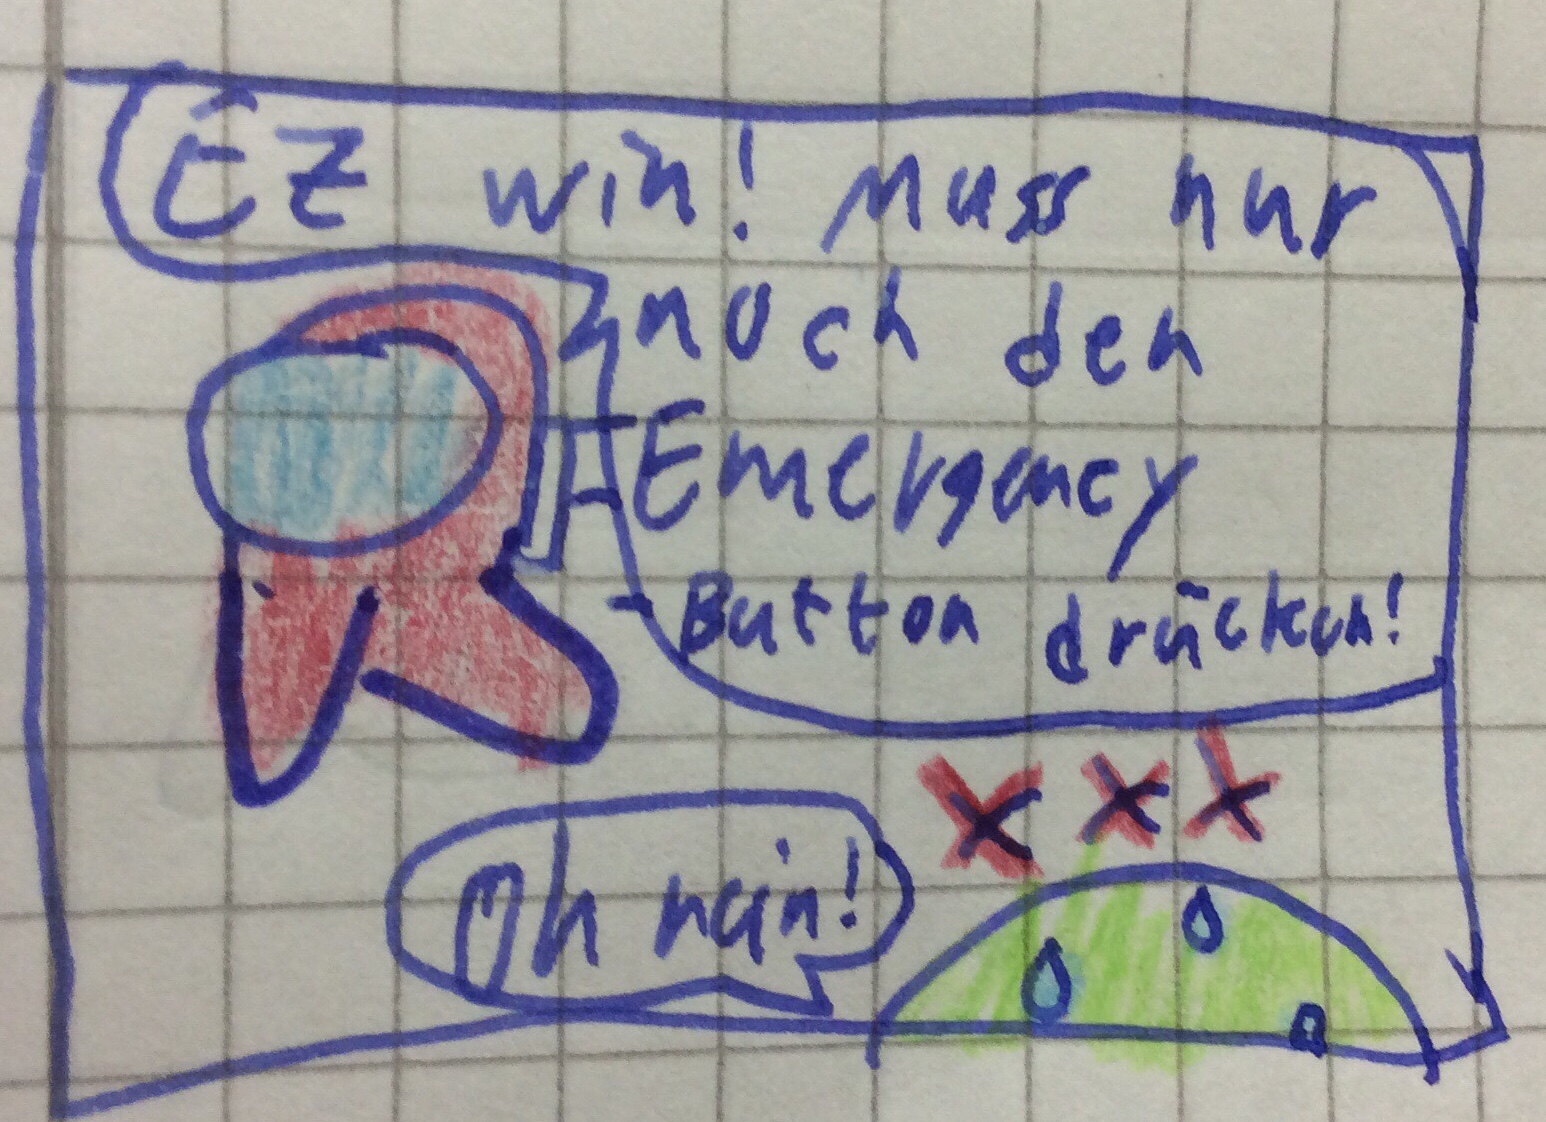 EZ win! Muss nur
noch den
Emergency
Button drücken!
XXX
Oh nein!